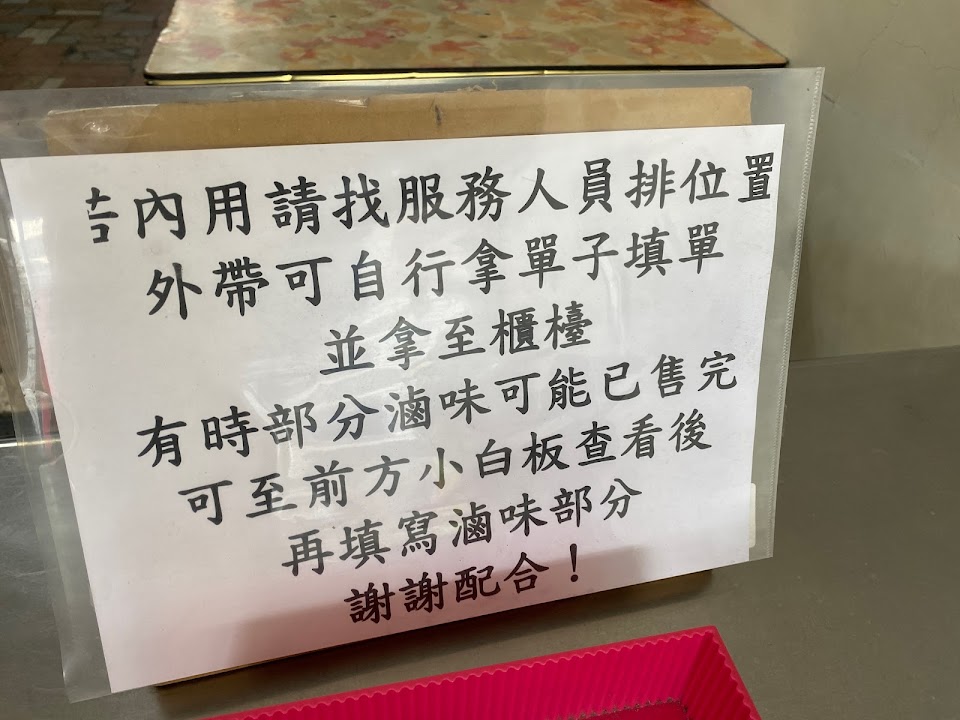 內用請找服務人員排位置
外帶可自行拿單子填單
並拿至櫃檯
有時部分滷味可能已售完
可至前方小白板查看後
再填寫滷味部分
謝謝配合！